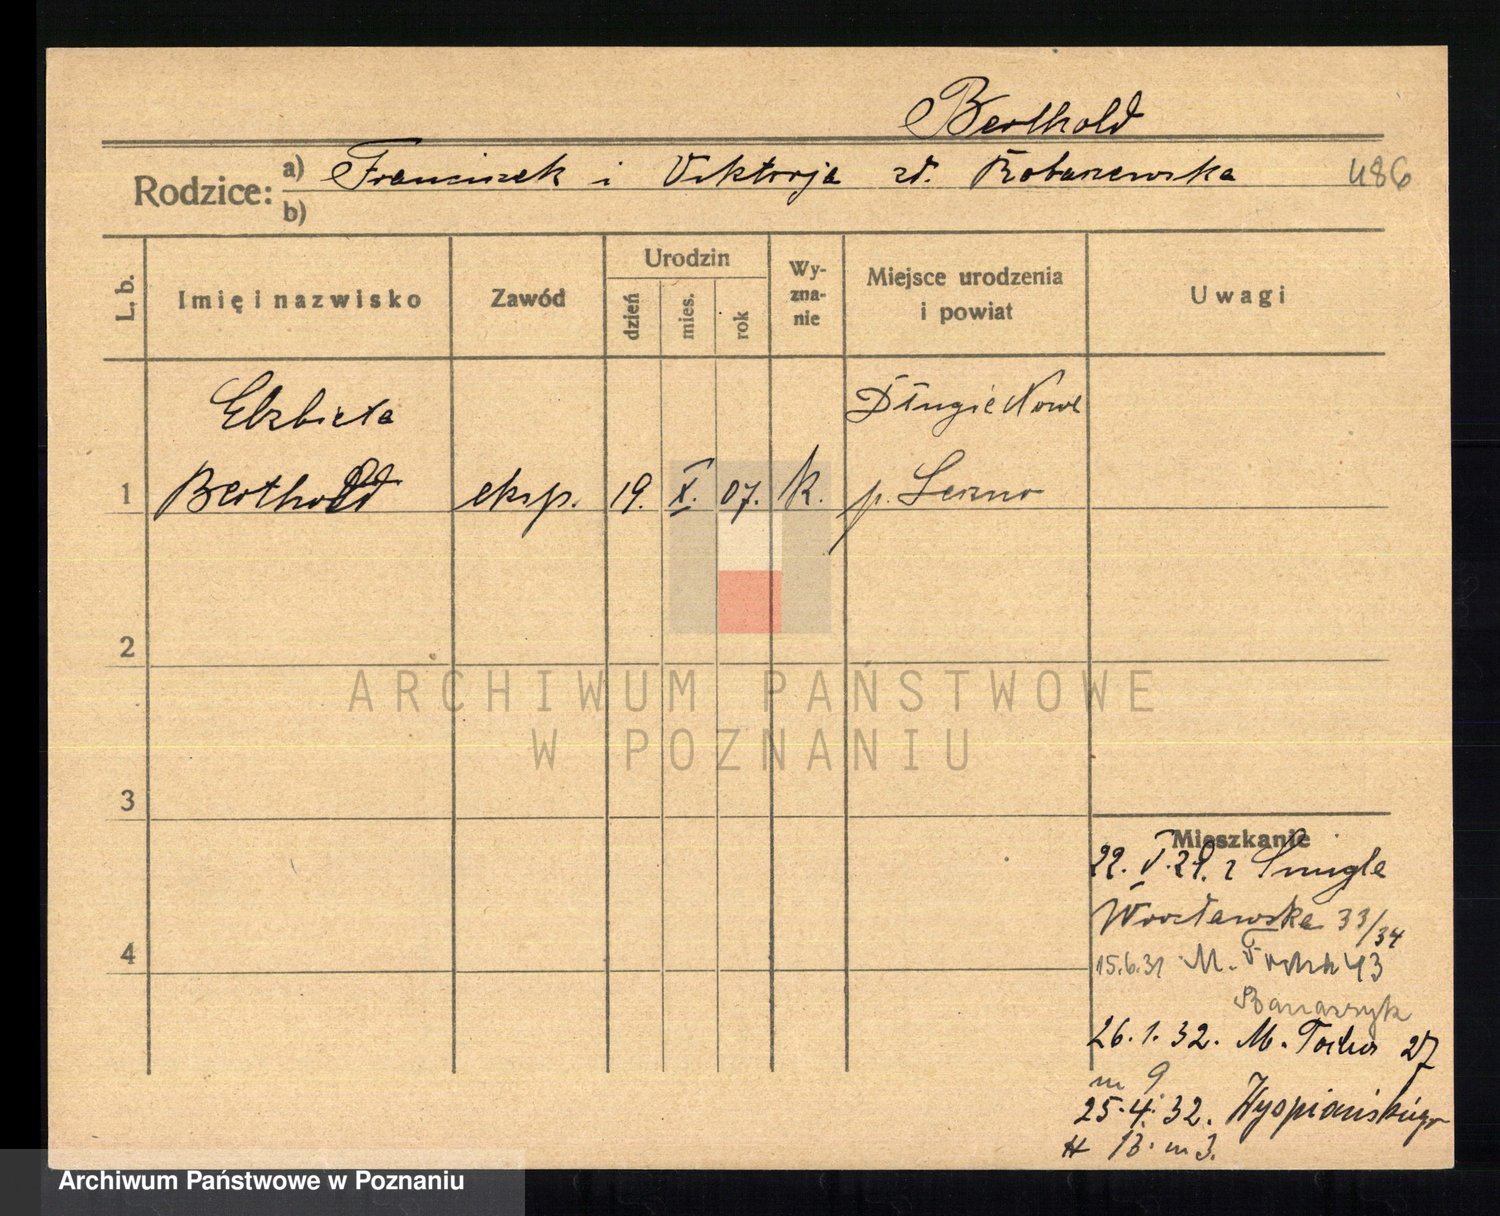 Berthold
Rodzice: a) Franciszek i Viktorja zd. Robaszewska 486
b)
L. b. Imię i nazwisko Zawód Urodzin dzień mies. rok Wy-zna-nie Miejsce urodzenia i powiat Uwagi
Elzbieta Długie Nowe
1 Berthold eksp. 19. X. 07. k. p. Leszno
2
ARCHIWUM PAŃSTWOWE
W POZNANIU
3
Mieszkanie
22. V. 29. z Smigla
Wrocławska 33/34
4
15.6.31 M. Focha 43
26.1.32. M. Focha 27
m 9
25.4.32. Wyspiańskiego
13. m 3.
Archiwum Państwowe w Poznaniu